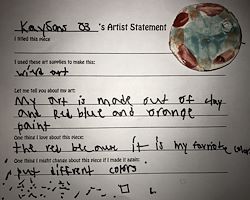 Kaydan 03 's Artist Statement
I titled this piece
I used these art supplies to make this:
wire art
Let me tell you about my art:
My art is made out of clay
and red blue and orange
paint
One thing I love about this piece:
the red because it is my favorite color
One thing I might change about this piece if I made it again:
put different colors